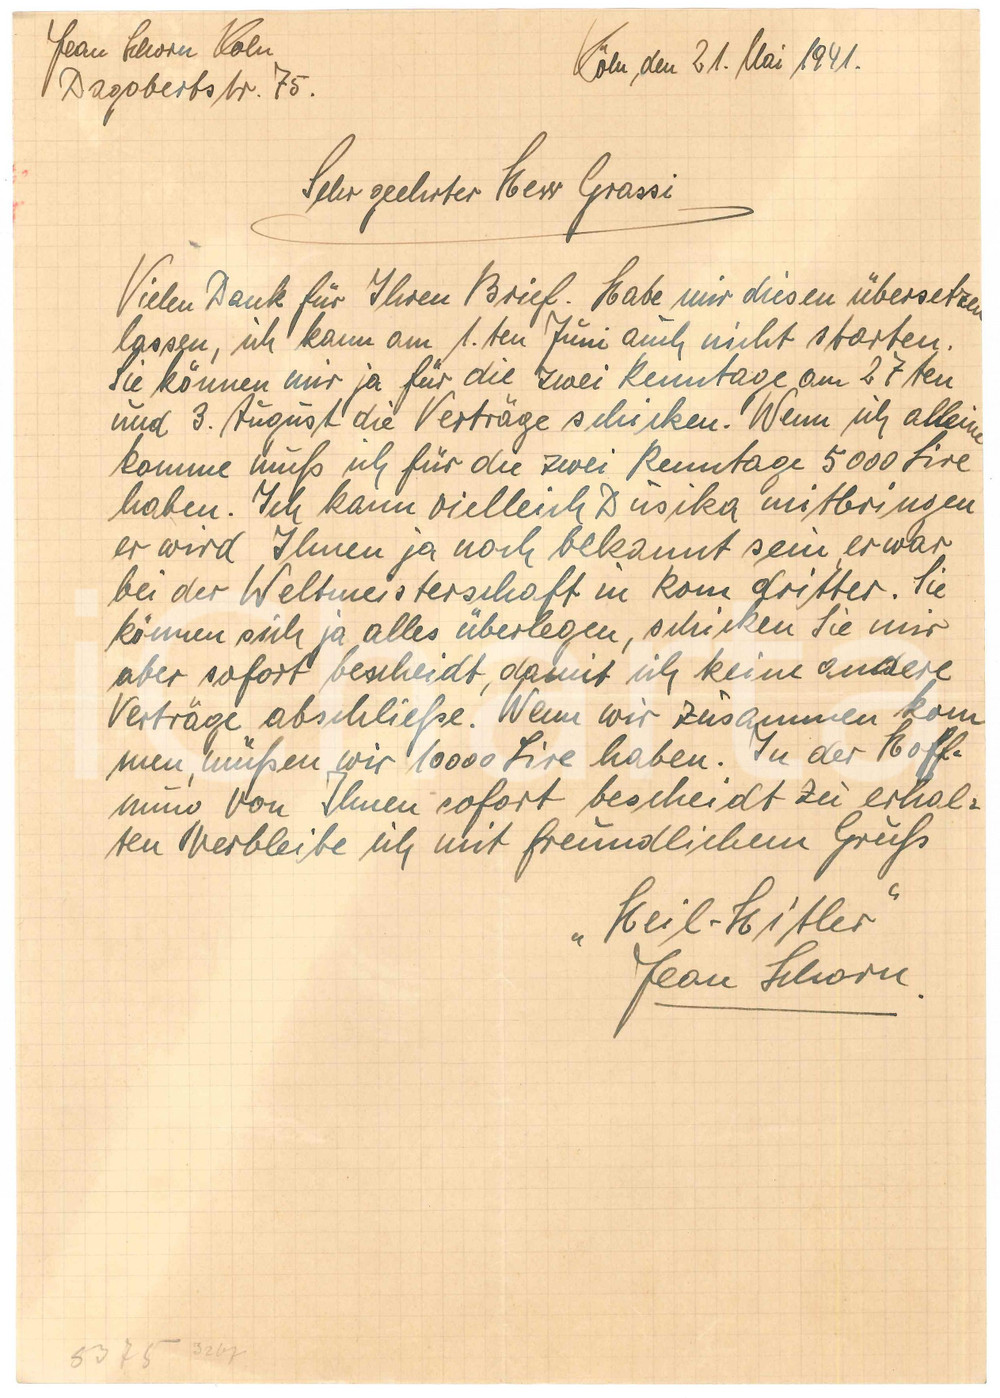 Jean Schorn Köln
Dagobertstr. 75.
Köln, den 21. Mai 1941.
Sehr geehrter Herr Grassi
Vielen Dank für Ihren Brief. Habe mir diesen übersetzen
lassen, ich kann am 1.ten Juni auch nicht starten.
Sie können mir ja für die zwei Renntage am 27ten
und 3. August die Verträge schicken. Wenn ich alleine
komme muß ich für die zwei Renntage 5000 Lire
haben. Ich kann vielleich Düsika mitbringen
er wird Ihnen ja noch bekannt sein, er war
bei der Weltmeisterschaft in Rom dritter. Sie
können sich ja alles überlegen, schicken Sie mir
aber sofort bescheidt, damit ich keine andere
Verträge abschließe. Wenn wir zusammen kom
men, müßen wir 10000 Lire haben. In der Hoff=
nung von Ihnen sofort bescheidt zu erhal=
ten Verbleibe ich mit freundlichem Gruß
„Heil-Hitler“
Jean Schorn.
5375